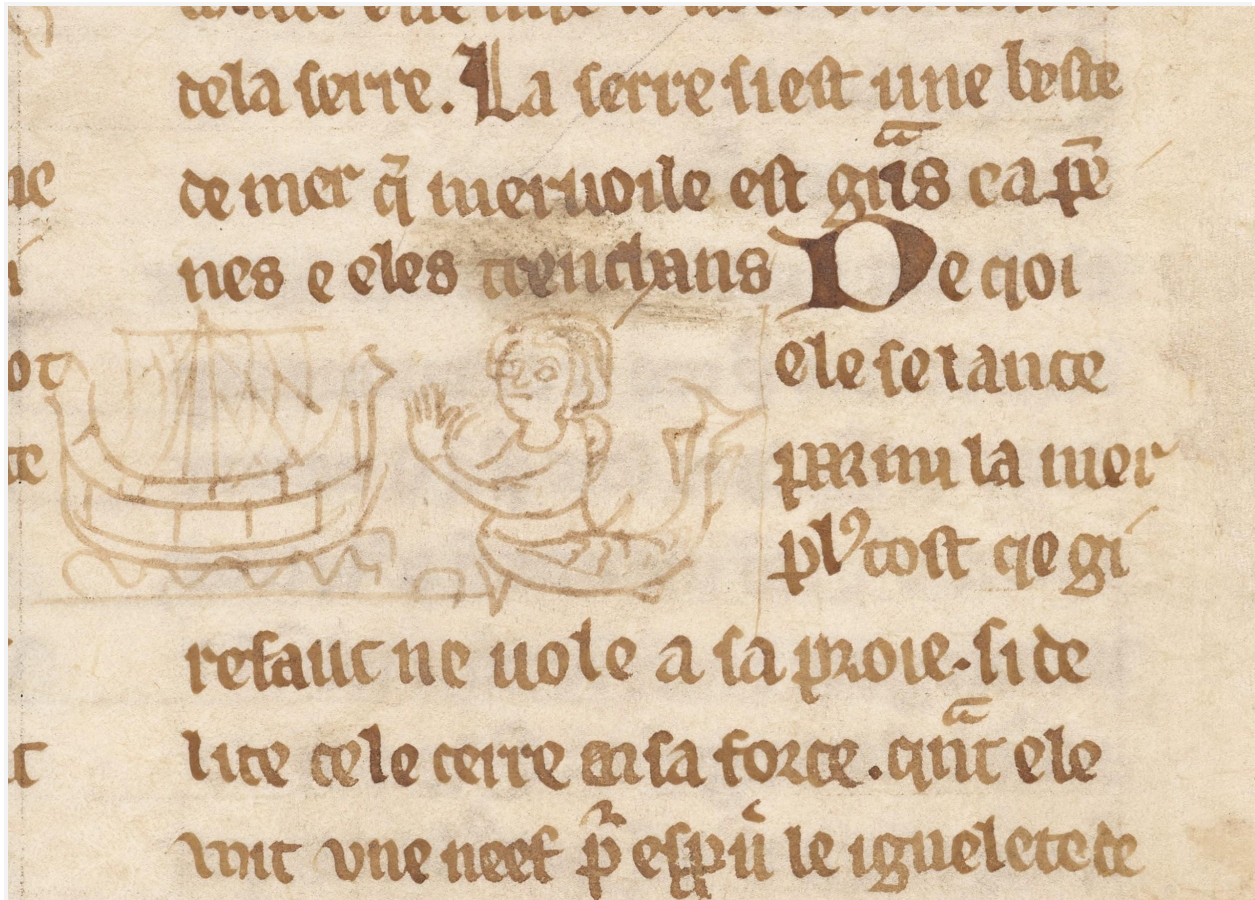 dela serre. La serre si est une beste
de mer q̃ meruoile est gᵃns e a pē
nes e eles trenchans De qoi
ele se lance
parmi la mer
plꝰ tost qe gi
refauc ne uole a sa proie. si de
lite cele cerre en sa force. qᵃnt ele
voit vne neef
le iguelete de